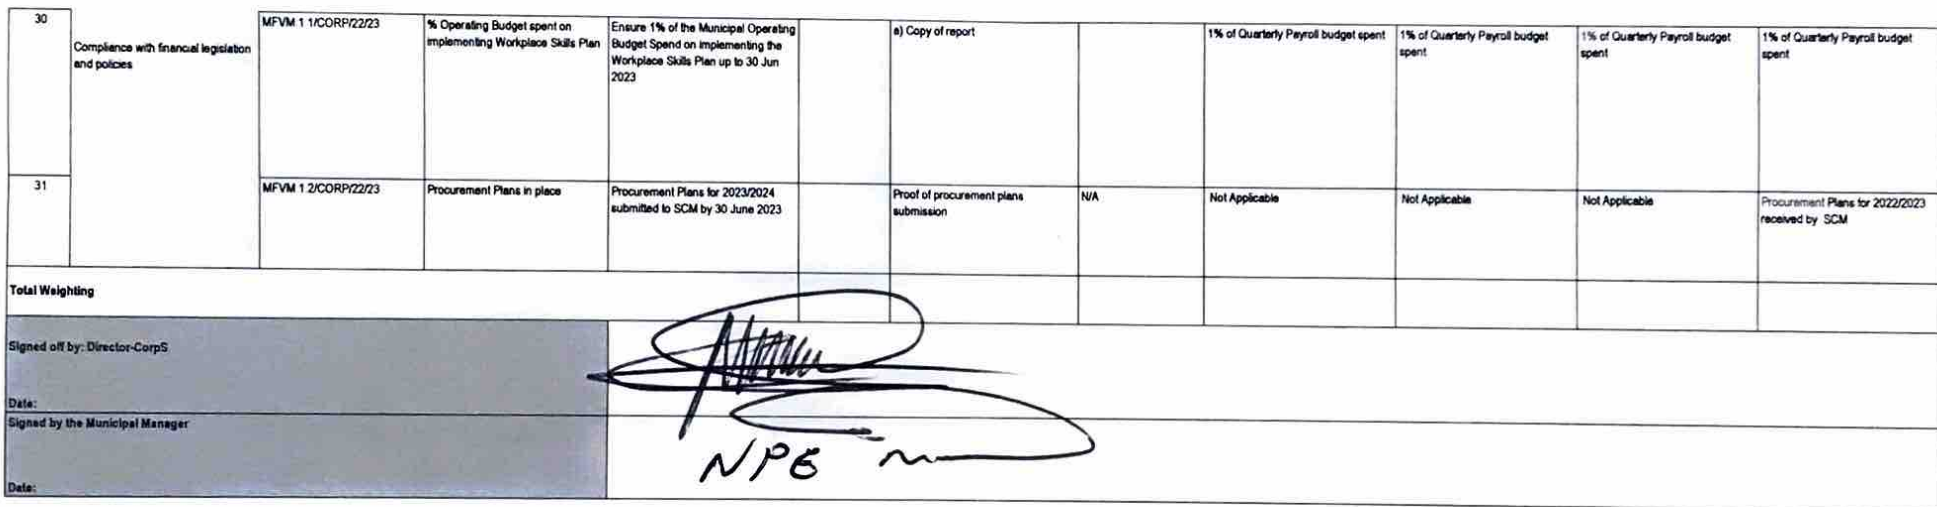 30
Compliance with financial legislation
and policies
MFVM 1 1/CORP/22/23
% Operating Budget spent on
implementing Workplace Skills Plan
Ensure 1% of the Municipal Operating
Budget Spend on implementing the
Workplace Skills Plan up to 30 Jun
2023
a) Copy of report
1% of Quarterly Payroll budget spent
1% of Quarterly Payroll budget
spent
1% of Quarterly Payroll budget
spent
1% of Quarterly Payroll budget
spent
31
MFVM 1 2/CORP/22/23
Procurement Plans in place
Procurement Plans for 2023/2024
submitted to SCM by 30 June 2023
Proof of procurement plans
submission
N/A
Not Applicable
Not Applicable
Not Applicable
Procurement Plans for 2022/2023
received by SCM
Total Weighting
Signed off by: Director-CorpS
Date:
Signed by the Municipal Manager
Date: